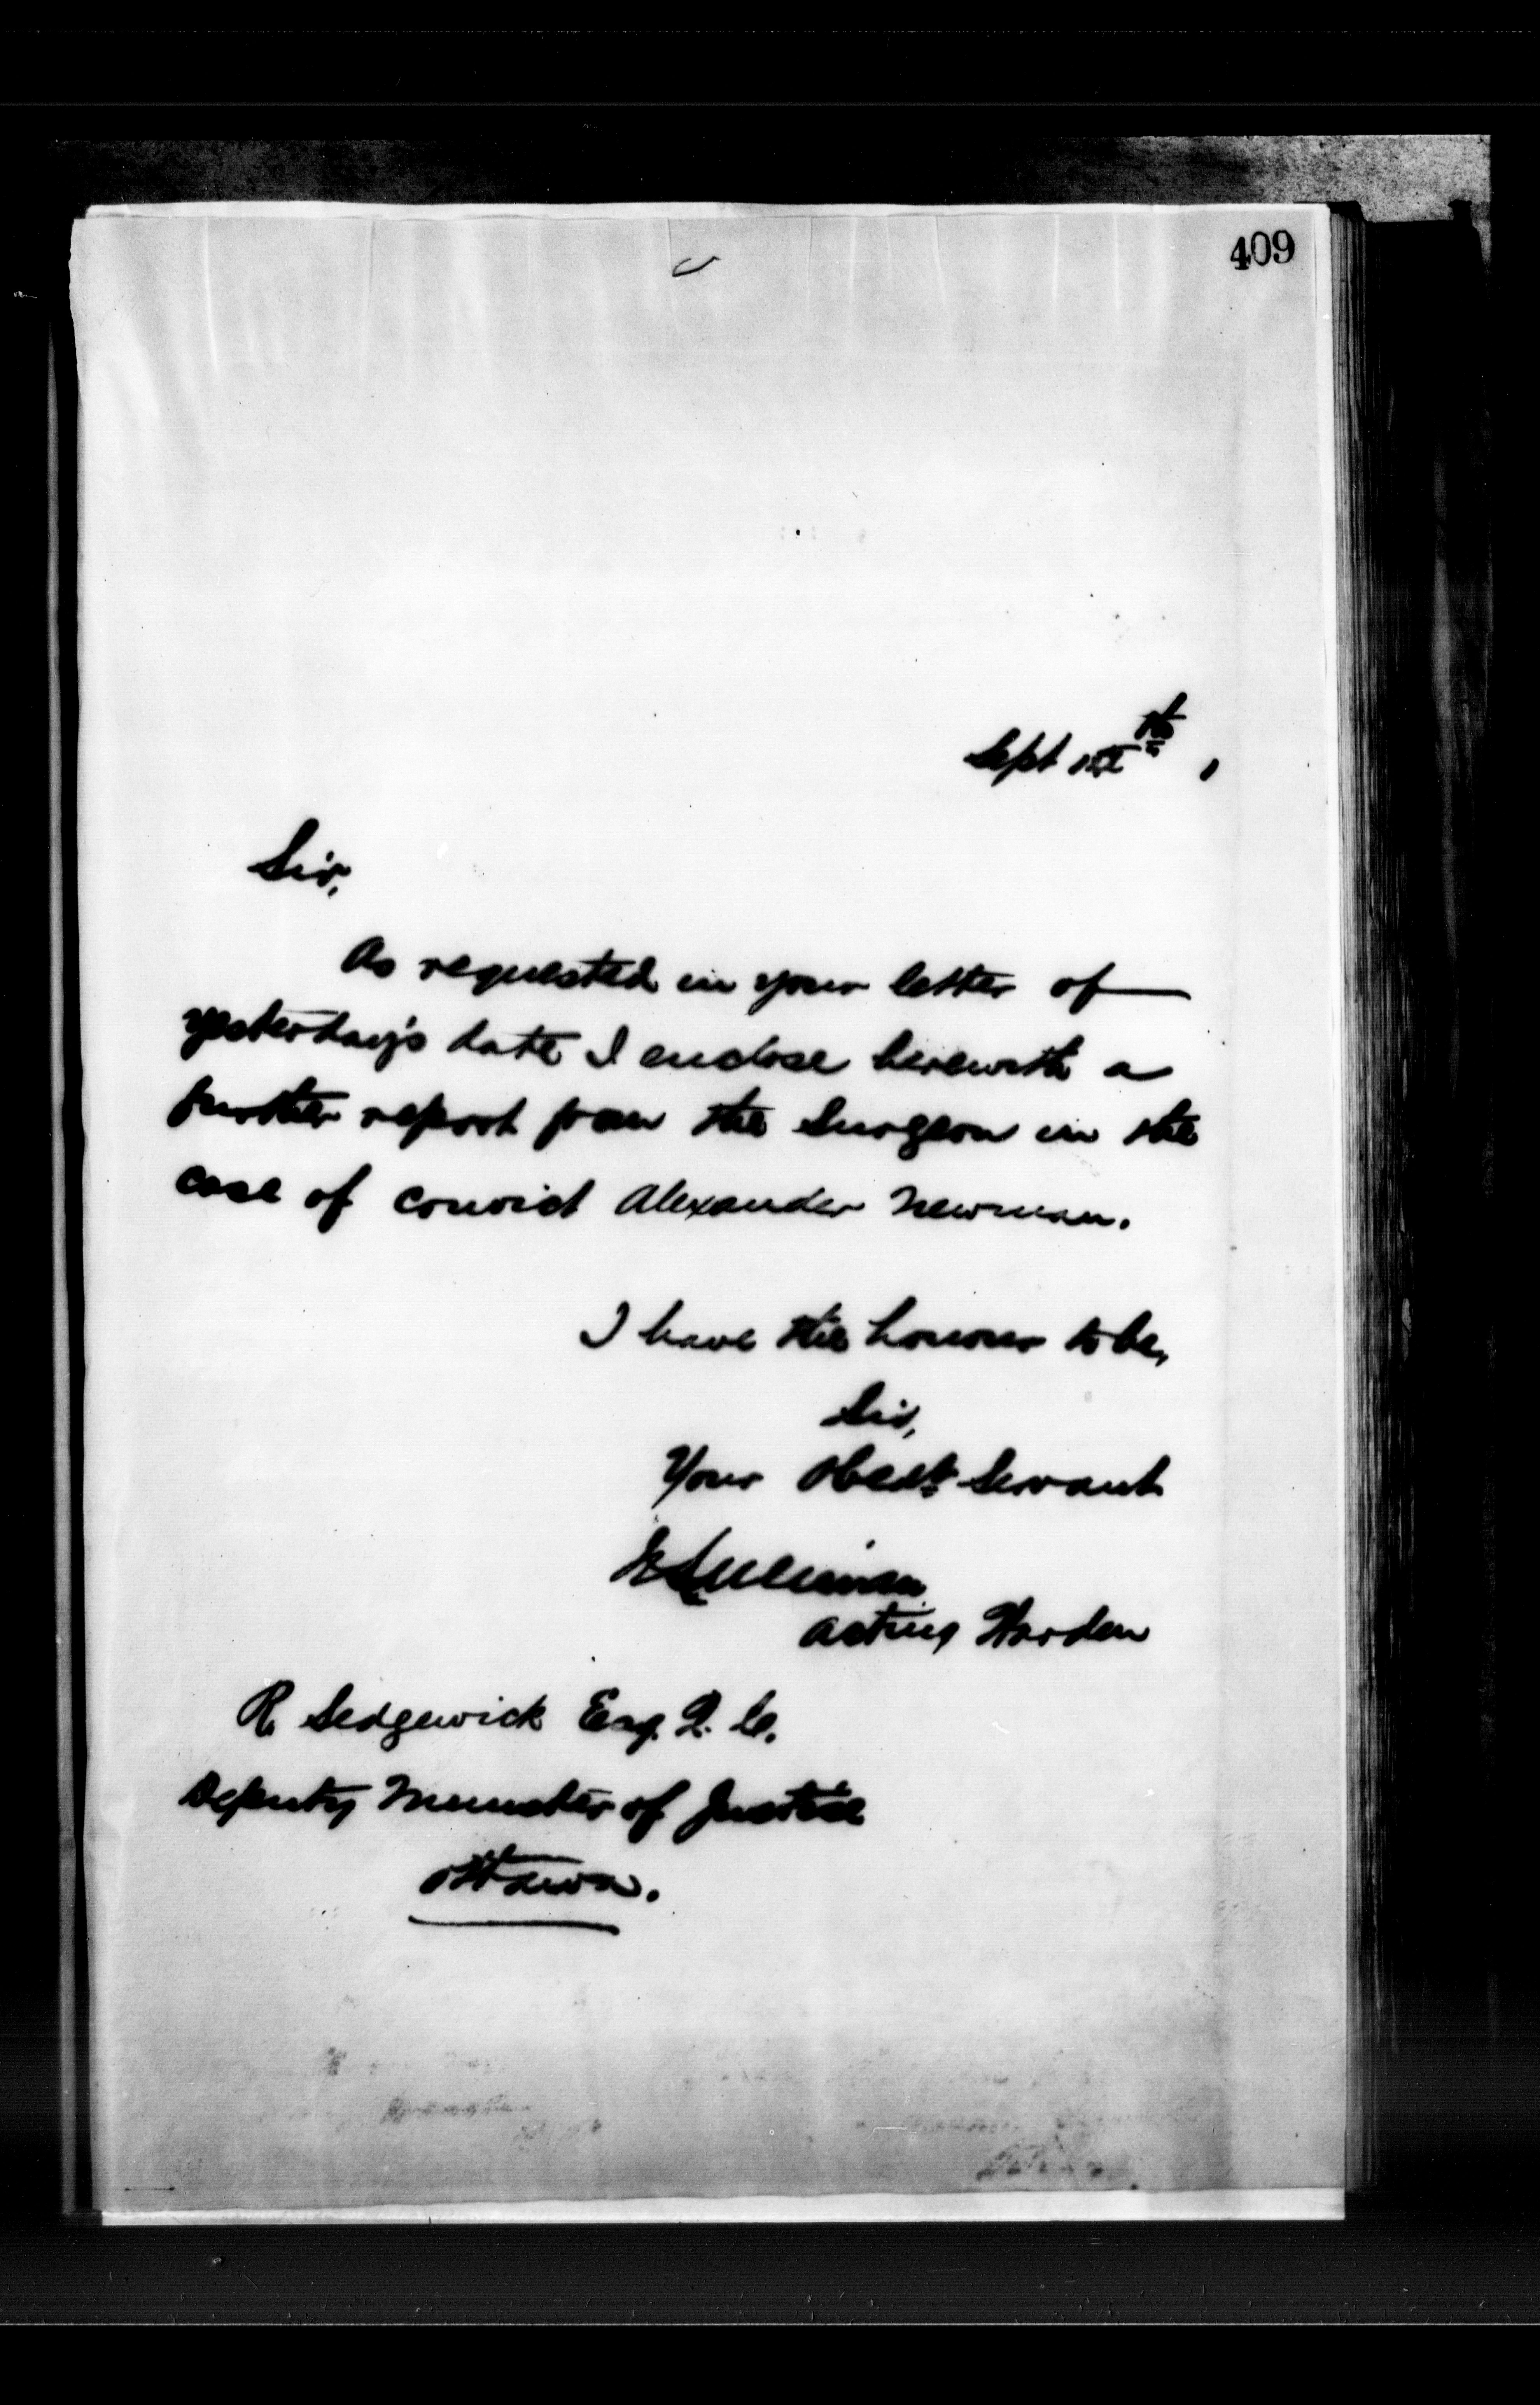 409
Sept
Sir,
As requested in your letter of
yesterday's date I enclose herewith a
further report from the Surgeon in the
case of convict Alexander Newman.
I have the honour to be,
Sir,
Your Obedt. Servant
Sullivan
Acting Warden
R. Sedgewick Esq. Q. C.
Deputy Minister of Justice
Ottawa.